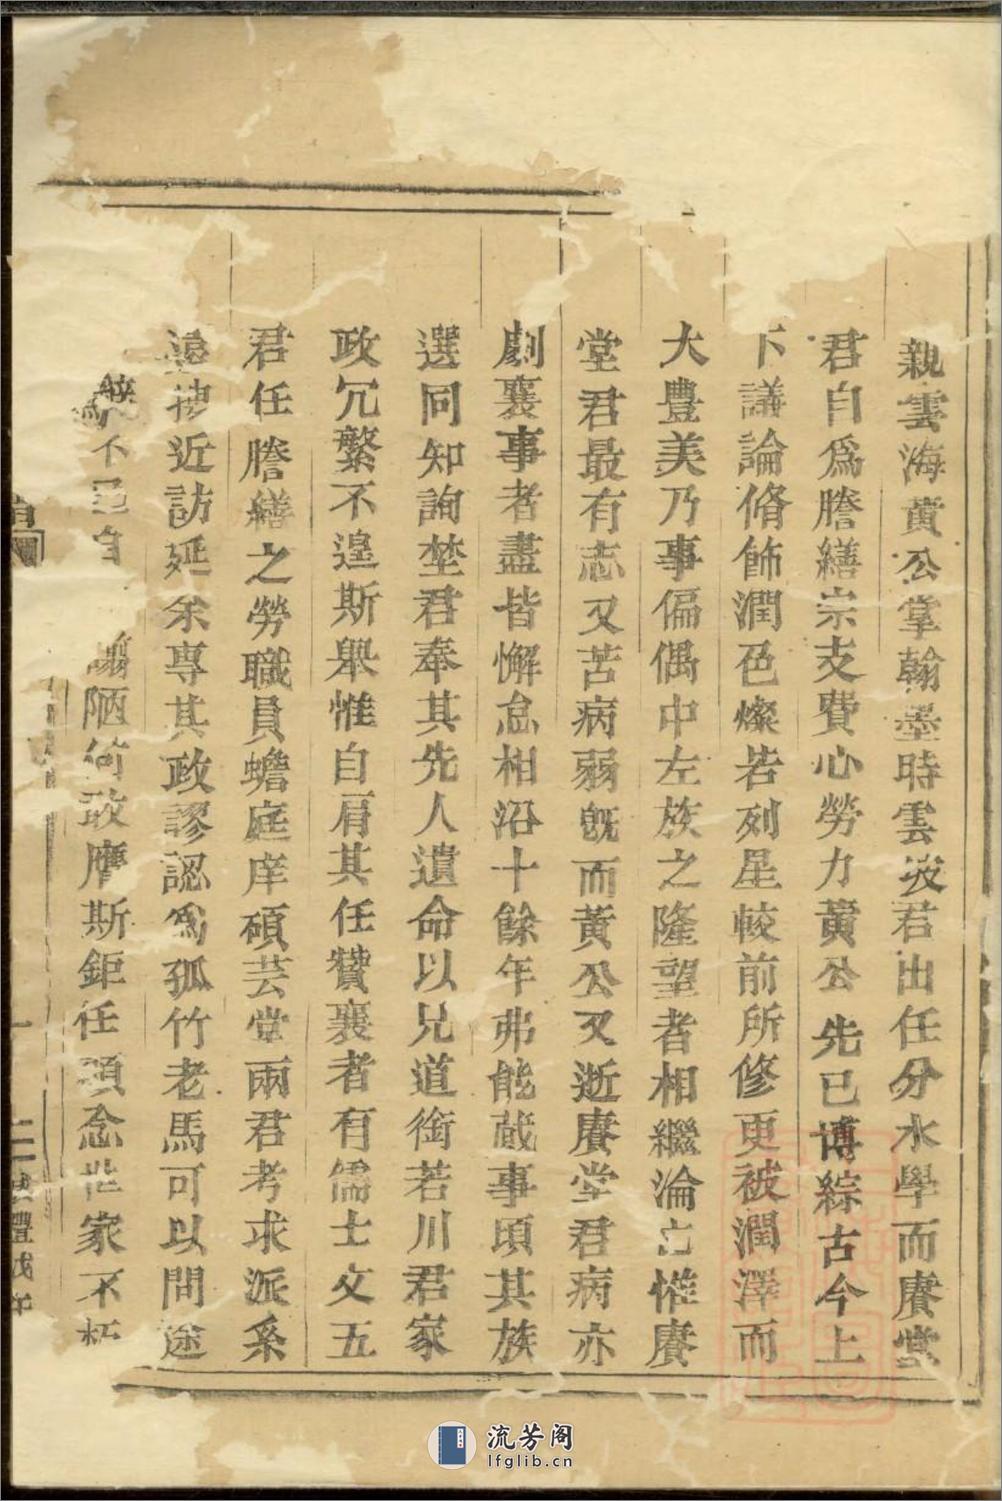 親雲海黄公掌翰墨時雲坡君出任分水學而賡堂
君自爲謄繕宗支費心勞力黄公先已博綜古今上
下議論脩飾潤色燦若列星較前所修更被潤澤而
大豊美乃事偏偶中左族之隆望者相繼淪亡惟賡
堂君最有志又苦病弱旣而黄公又逝賡堂君病亦
劇襄事者盡皆懈怠相沿十餘年弗能蕆事頃其族
選同知詢埜君奉其先人遺命以兄道銜若川君家
政冗繁不遑斯舉惟自肩其任贊襄者有儒士文五
君任謄繕之勞職員蟾庭庠碩芸堂兩君考求派系
遠搜近訪延余專其政謬認爲孤竹老馬可以問途
不 自 陋何敢膺斯鉅任須念世家不朽
二 豐戊午
流芳阁
lfglib.cn